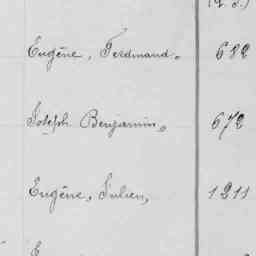 Eugène, Ferdinand. 682
Joseph Benjamin, 672
Eugène, Julien, 1211